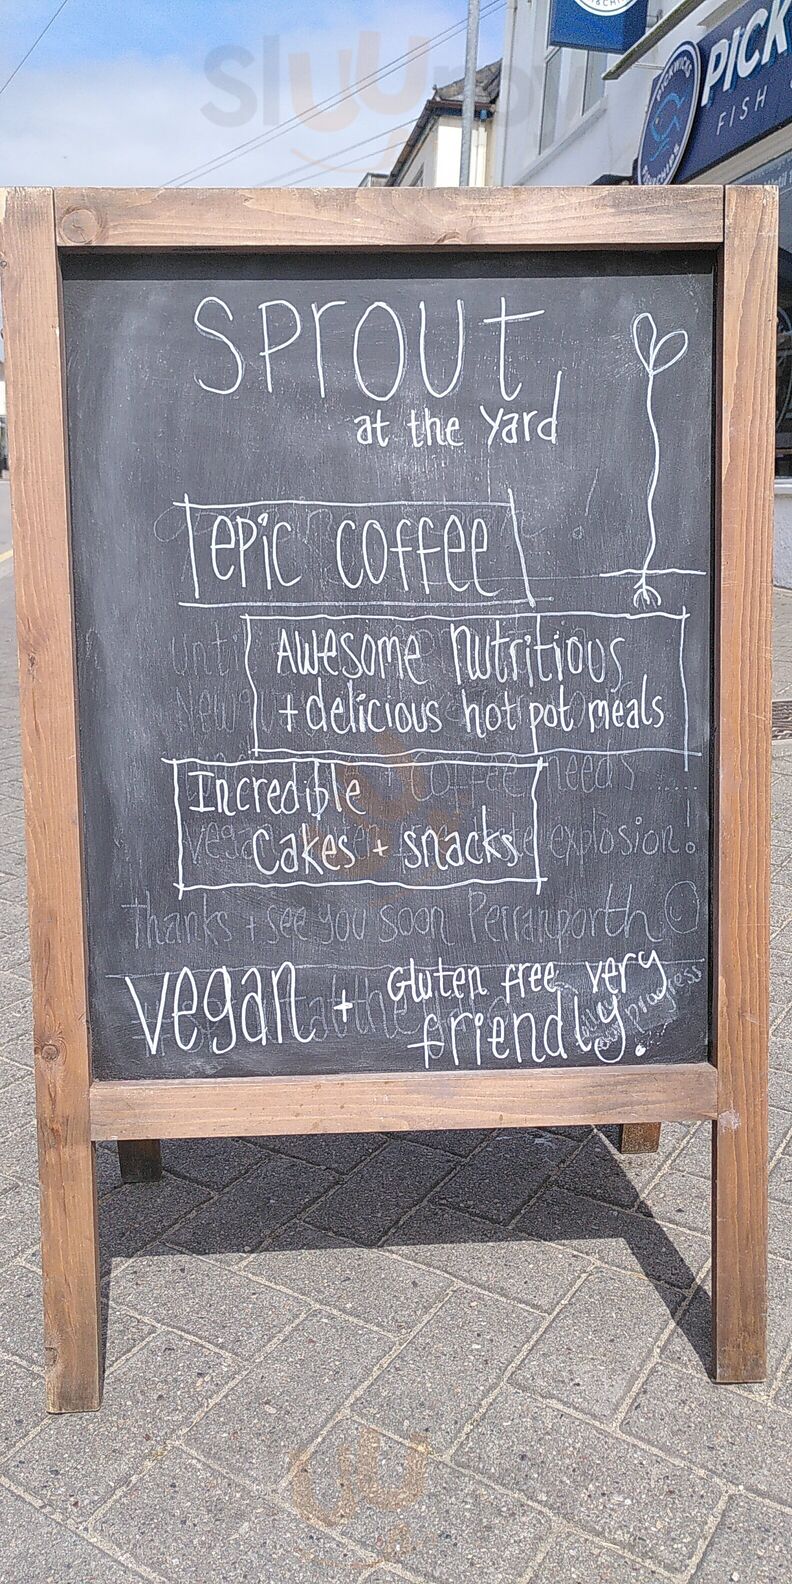 PICKWICKS
PICK
FISH
SPrOUT
at the yard
epic coffee
Awesome nutritious
+ delicious hot pot meals
Incredible
cakes + snacks
coffee needs .....
explosion!
Thanks + see you soon Perranporth
vegan + Gluten free very
friendly!
sluurpy